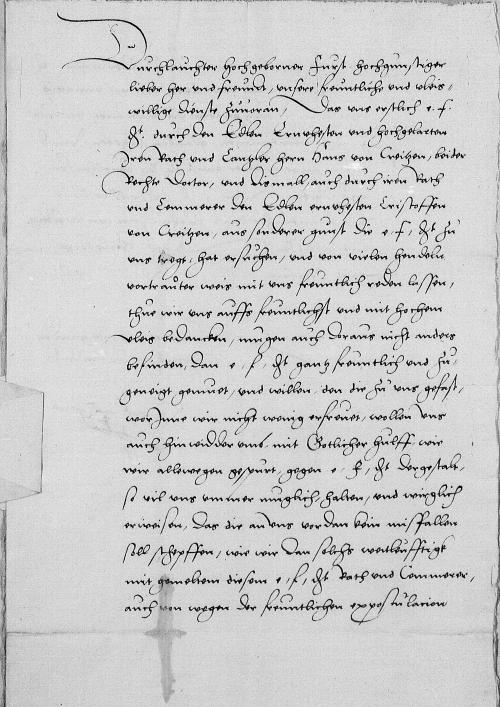 Durchlauchter hochgeborner Furst hochgunstiger
lieber her und freundt, unsere freuntliche und vleis-
willige dienste zuuoran, Das uns erstlich e. f.
dt. durch den Edlen Ernuhesten und hochgelarten
Iren Rath und Cantzler hern Hans von Creitzen, beider
Rechte Doctor, und dismall auch durch iren Rath
und Cemmerer den Edlen ernuhesten Cristoffen
von Creitzen, aus sonderer gunst die e. f. dt. zu
uns tregt, hat ersuchen, und von vielen hendeln
vortrauter weis mit uns freuntlich reden lassen,
thun wir uns auffs freuntlichst und mit hochem
vleis bedancken, mugen auch doraus nicht anders
befinden, dan e. f. dt. gantz freuntlich und zu-
geneigt gemuet, und willen, den die zu uns gefast,
worInne wir nicht wenig erfreuet, wollen uns
auch hinwidder umb, mit Gotlicher hulff, wie
wir allewegen gepurt, gegen e. f. dt. dergestalt,
so vil uns ummer muglich, halten, und wirglich
erweisen, das die an uns vordan kein misfallen
soll schepffen, wie wir dan solchs weitleufftigk
mit gemeltem diesem e. f. dt. Rath und Cemmerer,
auch von wegen der freuntlichen expostulacion